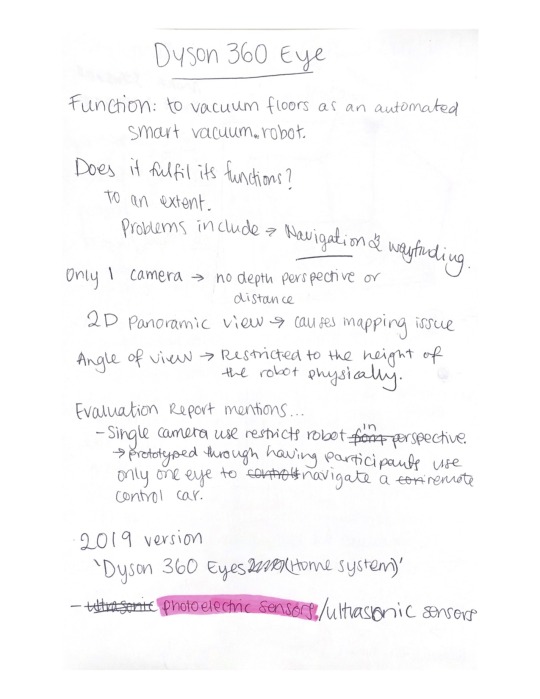 Dyson 360 Eye
Function: to vacuum floors as an automated
smart vacuum robot.
Does it fulfil its functions?
To an extent.
Problems include → Navigation & wayfinding.
Only 1 camera → no depth perspective or
distance
2D Panoramic view → causes mapping issue
Angle of view → Restricted to the height of
the robot physically.
Evaluation Report mentions...
- Single camera use restricts robot in perspective.
→ prototyped through having participants use
only one eye to navigate a remote
control car.
2019 version
'Dyson 360 Eyes (Home system)'
- ultrasonic photoelectric sensors/ultrasonic sensors